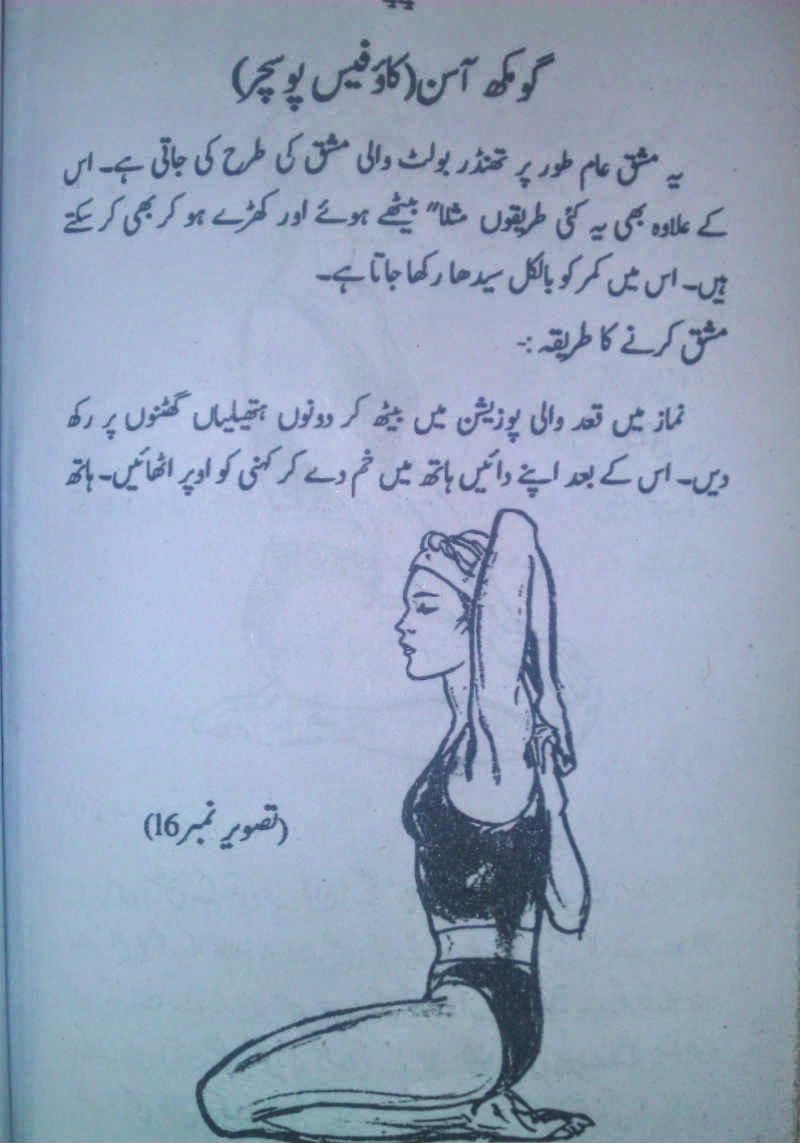 گومکھ آسن (کاؤفیس پوسچر)
یہ مشق عام طور پر تھنڈر بولٹ والی مشق کی طرح کی جاتی ہے۔ اس
کے علاوہ بھی یہ کئی طریقوں مثلا" بیٹھے ہوئے اور کھڑے ہو کر بھی کر سکتے
ہیں۔ اس میں کمر کو بالکل سیدھا رکھا جاتا ہے۔
مشق کرنے کا طریقہ :-
نماز میں قعد والی پوزیشن میں بیٹھ کر دونوں ہتھیلیاں گھٹنوں پر رکھ
دیں۔ اس کے بعد اپنے دائیں ہاتھ میں خم دے کر کہنی کو اوپر اٹھائیں۔ ہاتھ
(تصویر نمبر 16)